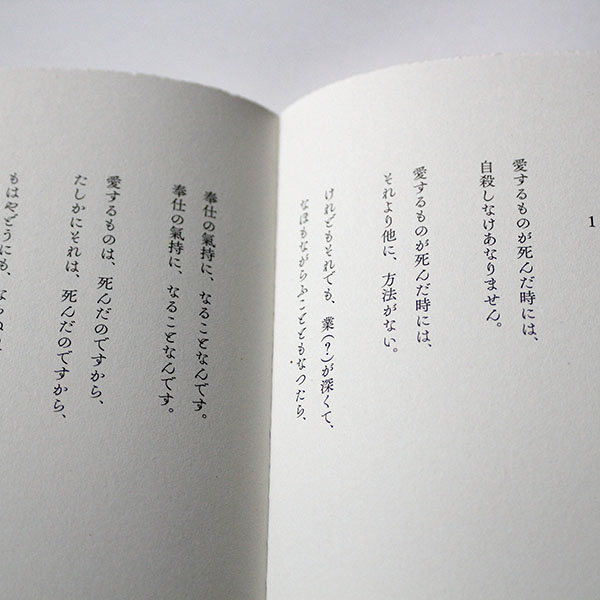 1
愛するものが死んだ時には、
自殺しなけあなりません。
愛するものが死んだ時には、
それより他に、方法がない。
けれどもそれでも、業(?)が深くて、
なほもながらふことともなつたら、
奉仕の氣持に、なることなんです。
奉仕の氣持に、なることなんです。
愛するものは、死んだのですから、
たしかにそれは、死んだのですから、
もはやどうにも、ならぬ